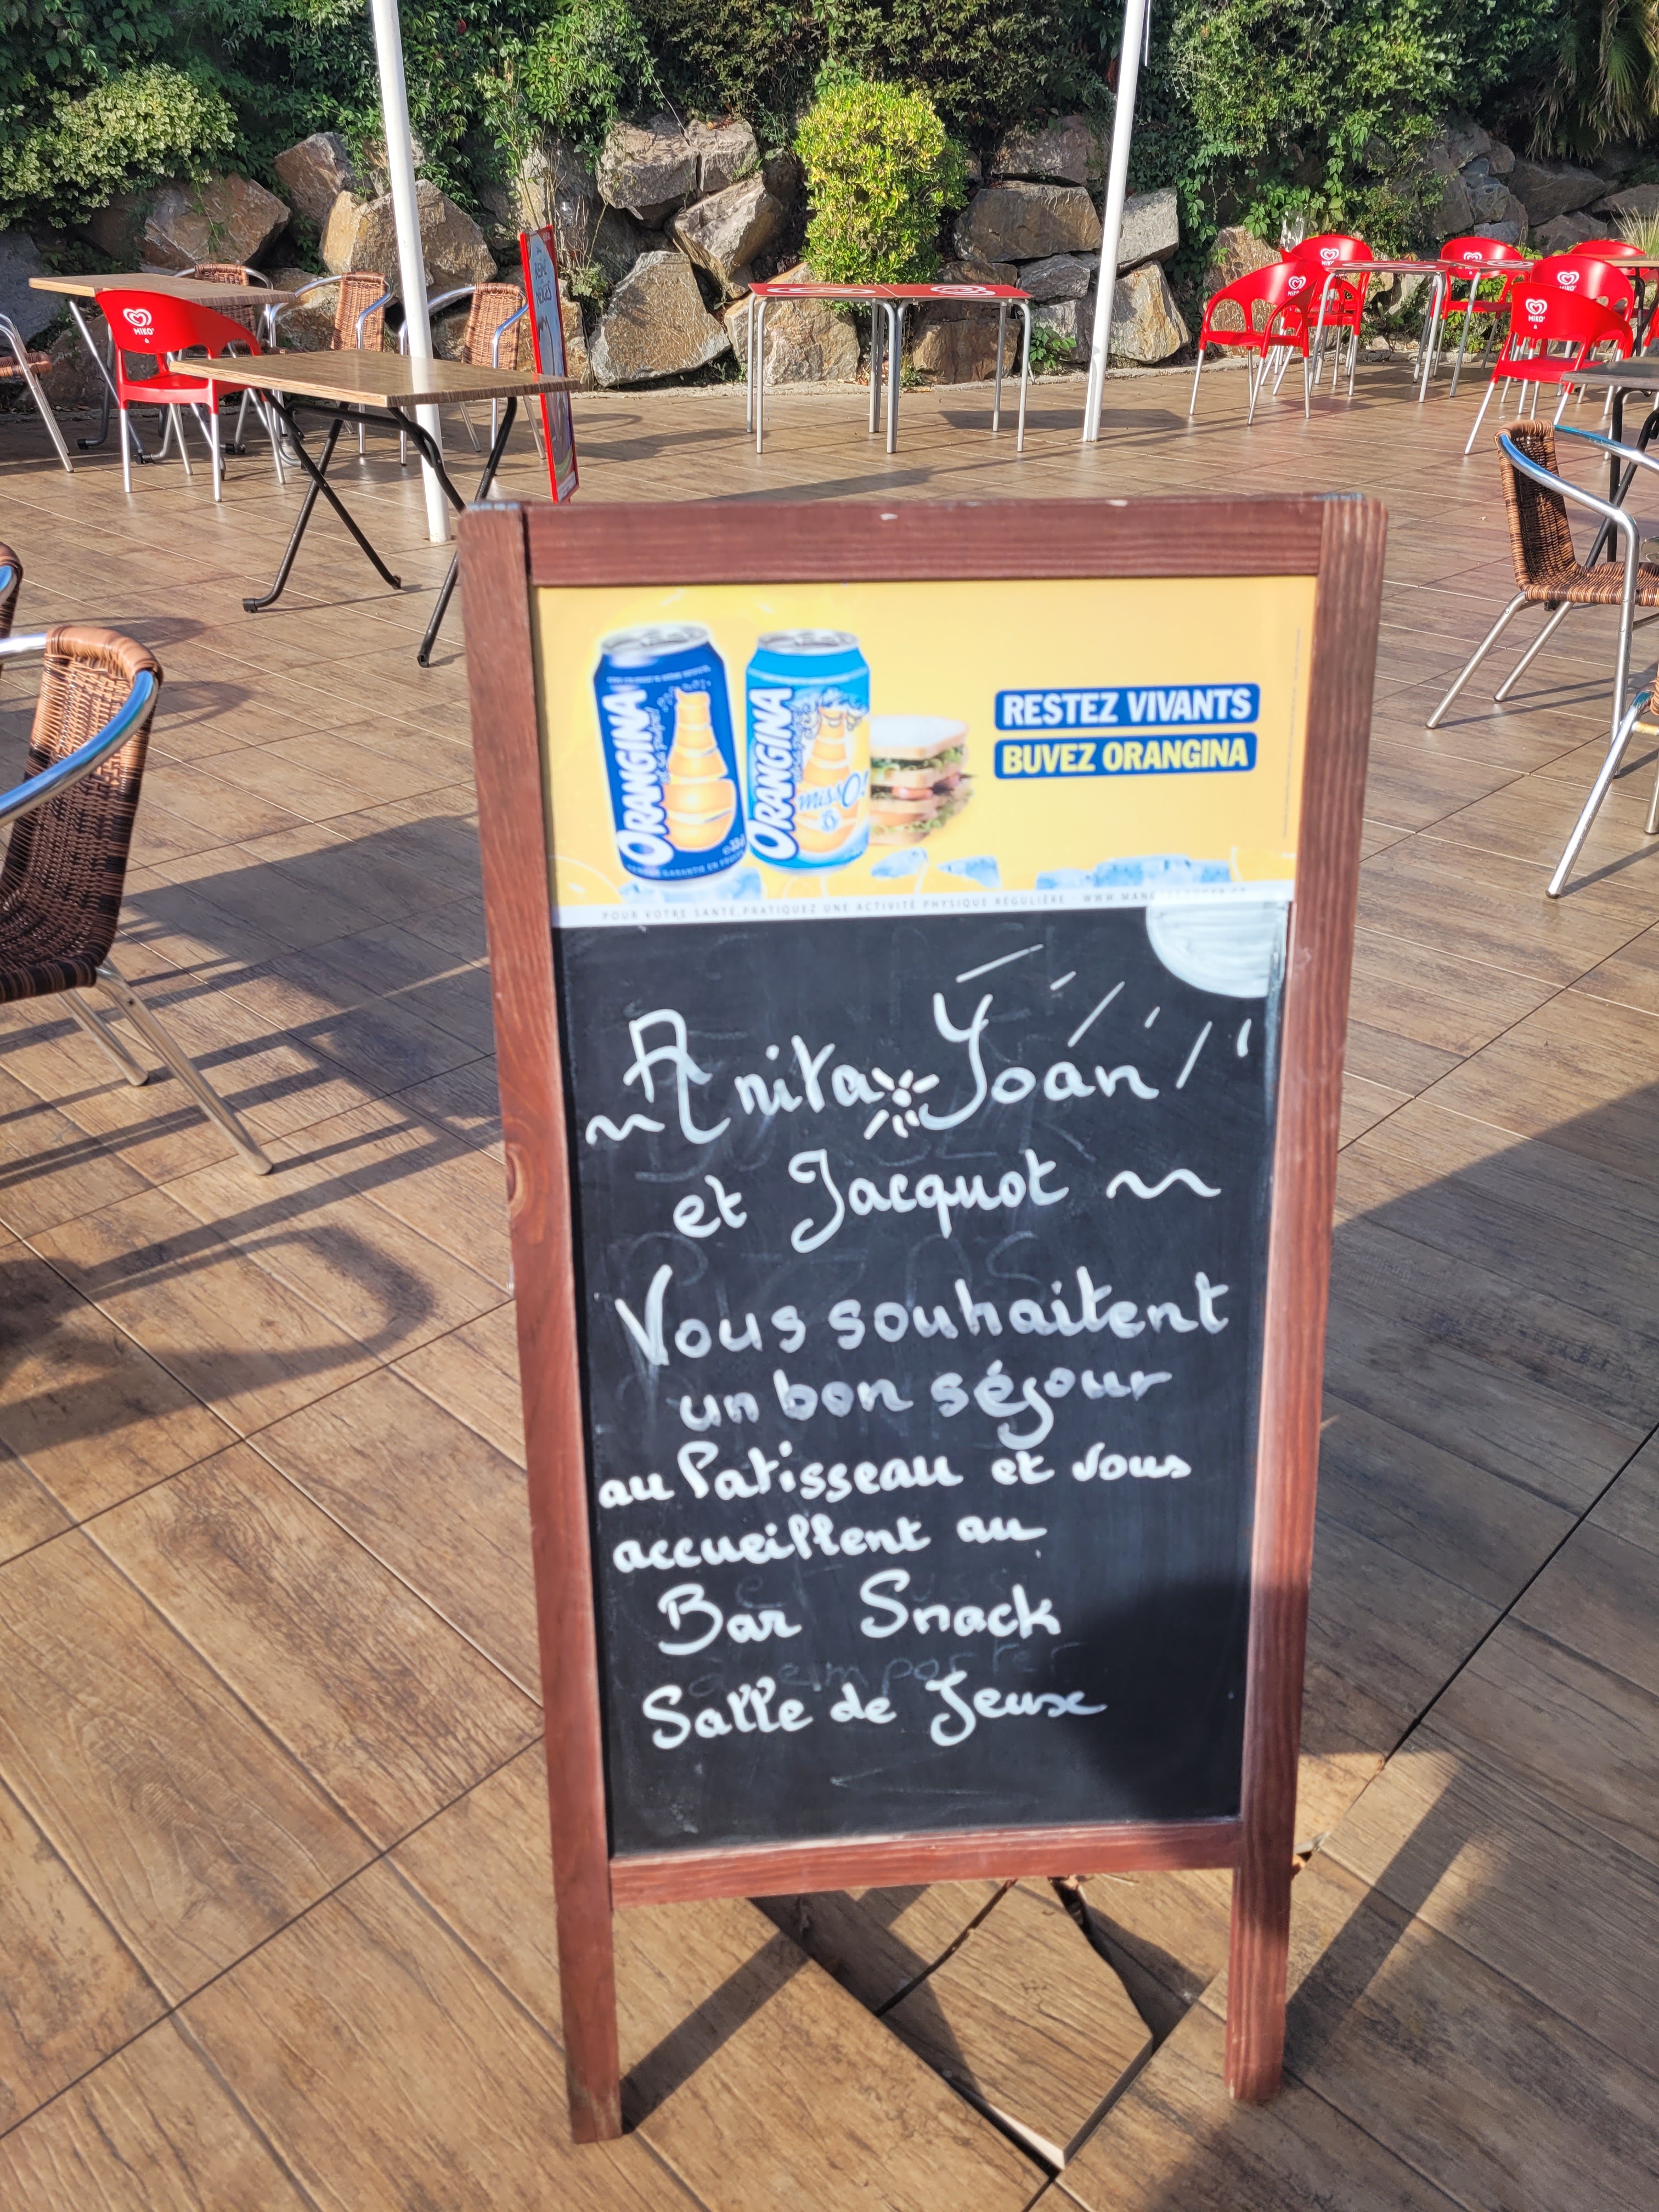 MIKO
MIKO
MIKO
MIKO
MIKO
ORANGINA
ORANGINA
missO!
RESTEZ VIVANTS
BUVEZ ORANGINA
POUR VOTRE SANTÉ, PRATIQUEZ UNE ACTIVITÉ PHYSIQUE RÉGULIÈRE
Anita Yoan
et Jacquot
Vous souhaitent
un bon séjour
au Patisseau et vous
accueillent au
Bar Snack
à emporter
Salle de Jeux